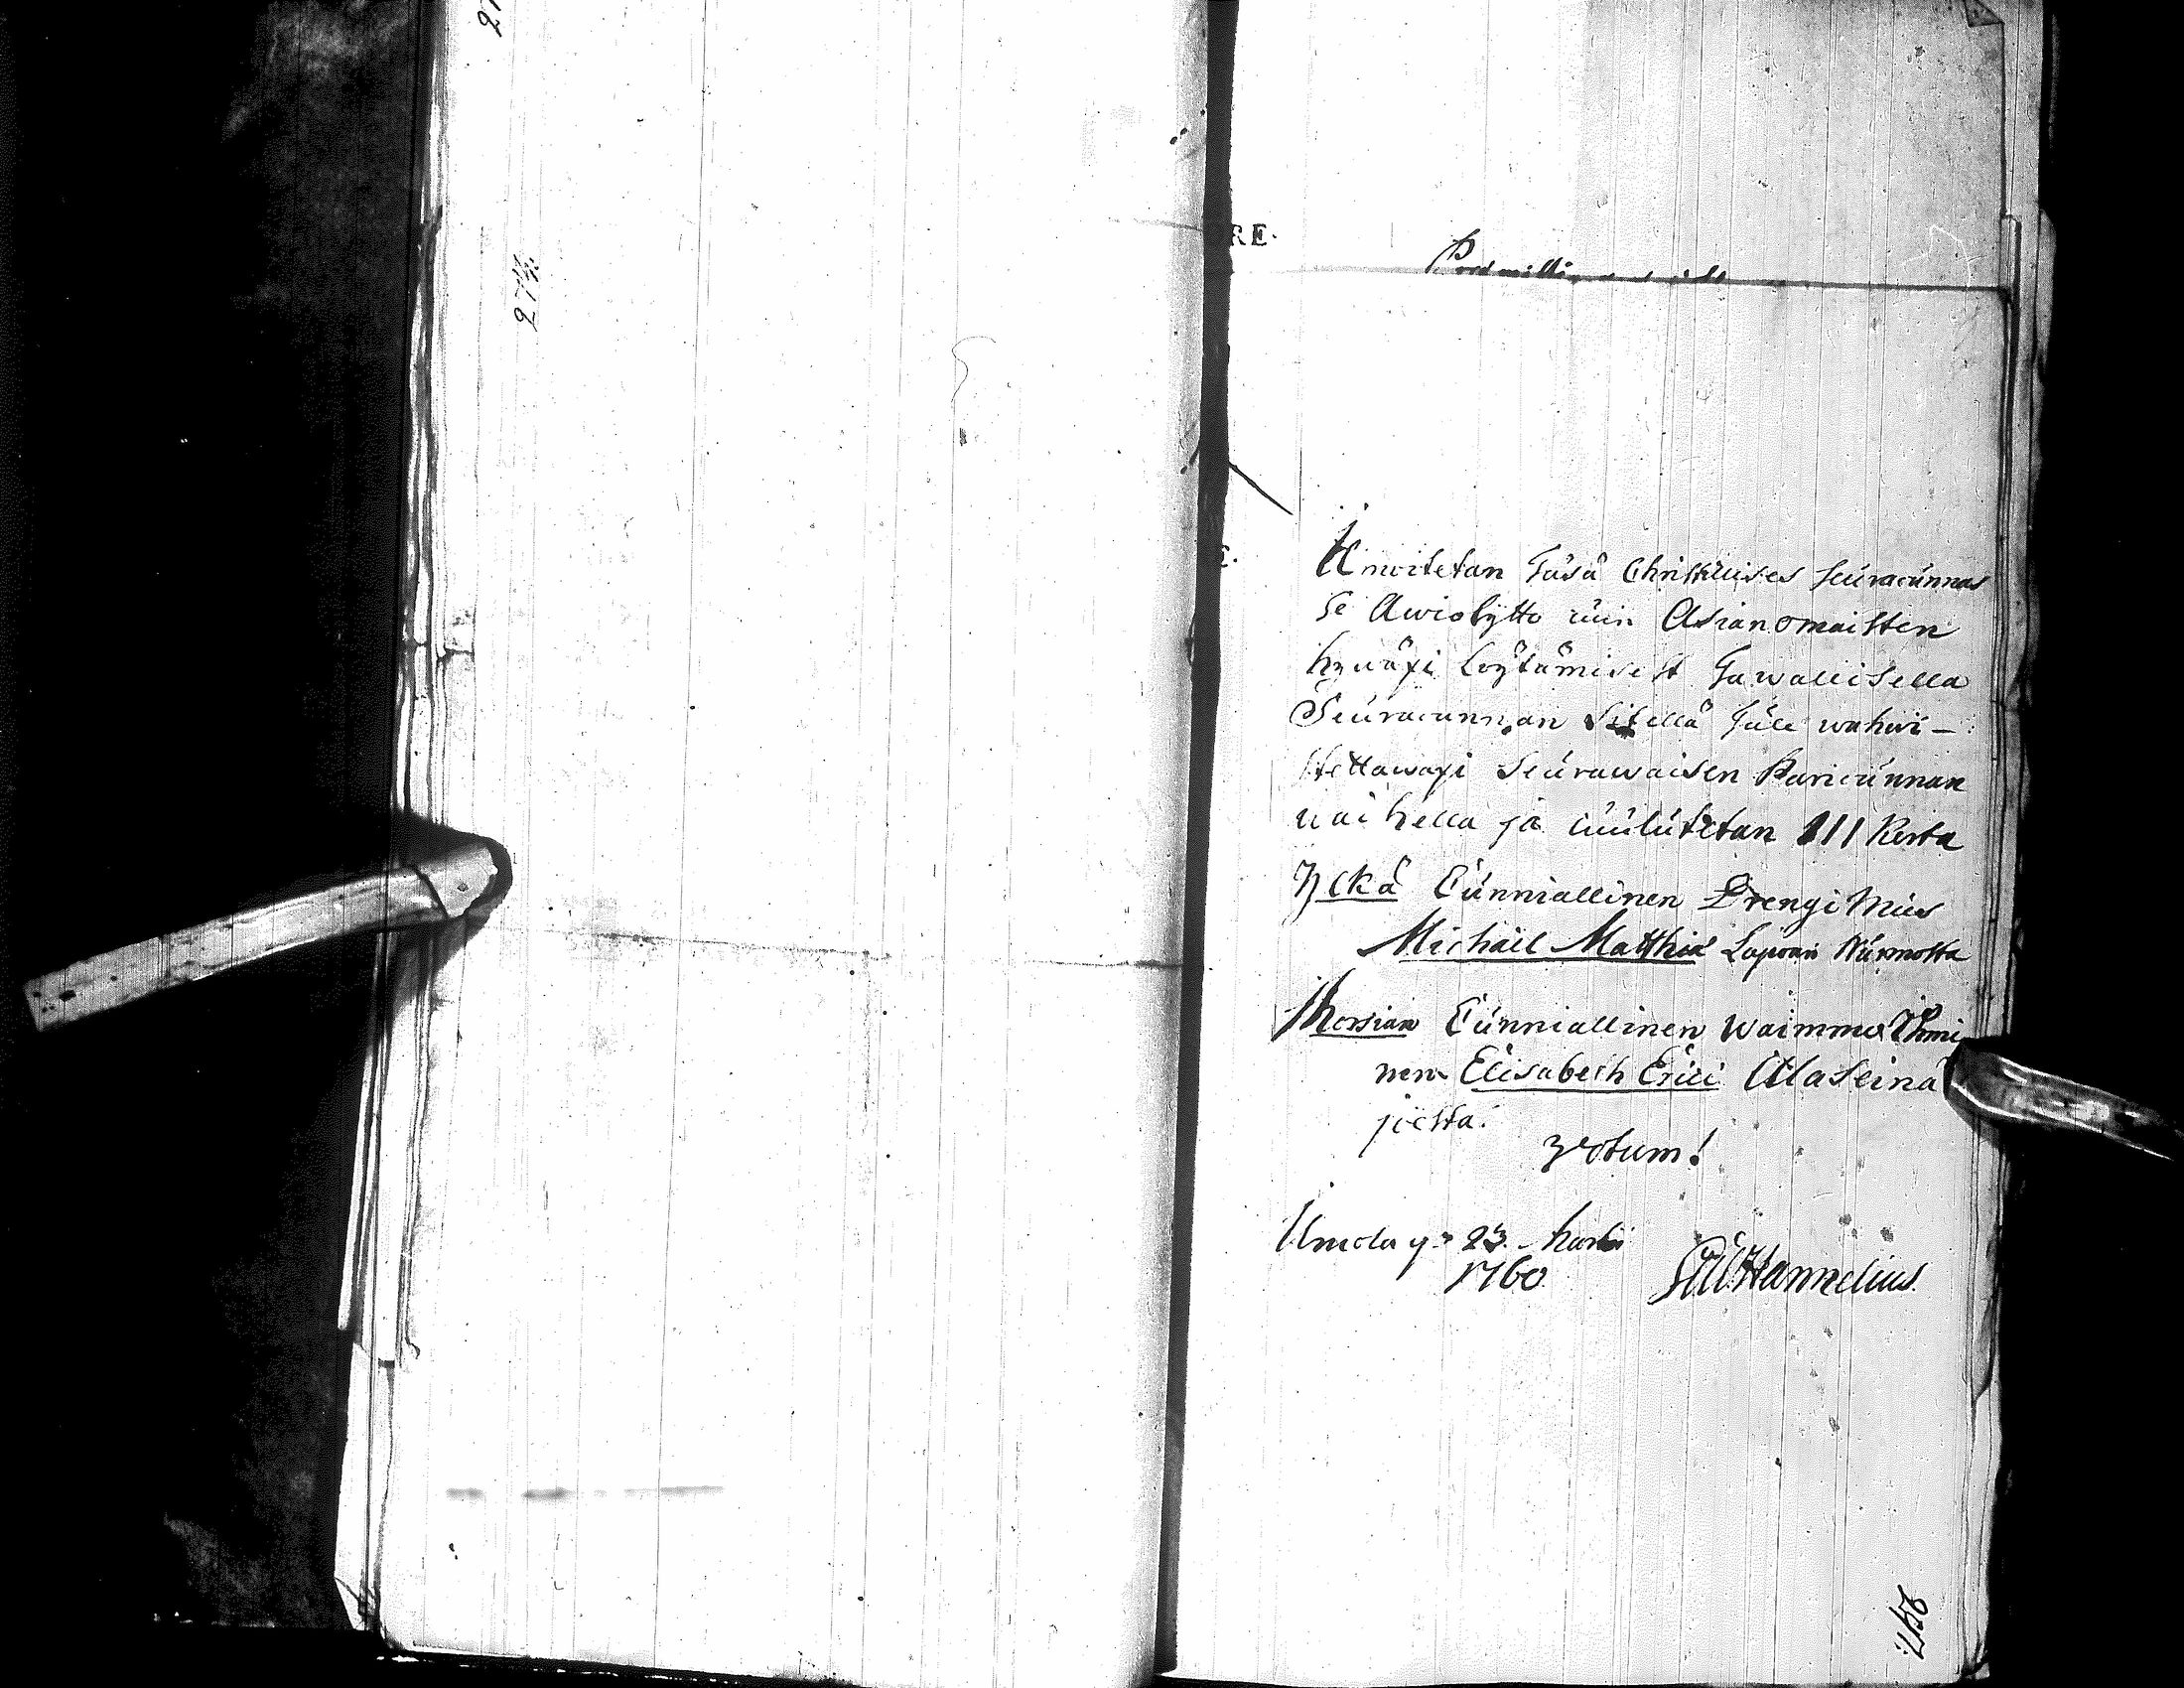 274.
RE.
Ilmoitetan Täsä Christillises Seuracunnas
se Awiokäsky cuin Asianomaisten
hywäxi löytämisest Tawallisella
Seuracunnan Sitellä Tule wahwi-
stettawaxi Seurawaisen Paricunnan
waihella ja cuulutetan III Kerta
Ylkä Cunniallinen Drengi Mies
Michäel Matthiæ Lapoan Nurmosta
Morsian Cunniallinen Waimmo Ihmi
nen Elisabeth Erici Ala Seinä
joelta.
votum!
Ilmola y. 23. Martii
1760
Hannelius.
257.